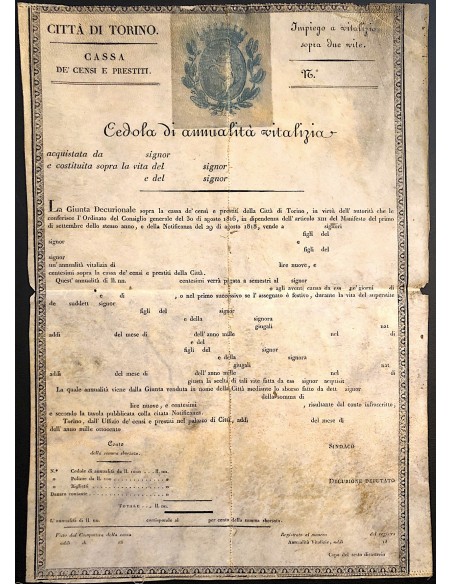 CITTÀ DI TORINO.
CASSA
DE' CENSI E PRESTITI.
Impiego a vitalizio
sopra due vite.
N.°
Cedola di annualità vitalizia
acquistata da signor
e costituita sopra la vita del signor
e del signor
La Giunta Decurionale sopra la cassa de' censi e prestiti della Città di Torino, in virtù dell' autorità che le
conferisce l'Ordinato del Consiglio generale del 30 di agosto 1816, in dipendenza dell' articolo XIII del Manifesto del primo
di settembre dello stesso anno, e della Notificanza del 29 di agosto 1818, vende a signori
figli del
signor e
figli del
signor
un' annualità vitalizia di lire nuove, e
centesimi sopra la cassa de' censi e prestiti della Città.
Quest' annualità di ll. nn. centesimi verrà pagata a semestri al signor
e agli aventi causa da essa ne' giorni di
e di , o nel primo successivo se l'assegnato è festivo, durante la vita del superstite
de suddett signor
figli del signor
e della signora
giugali nat
addì del mese di dell' anno mille nel di
e del
figli del signor
e della signora
giugali nat
addì del mese di dell' anno mille nel di
giusta la scelta di tali vite fatta da ess signor acquisit
La quale annualità viene dalla Giunta venduta in nome della Città mediante lo sborso fatto da dett signor
della somma di
lire nuove, e centesimi , risultante dal conto infrascritto,
e secondo la tavola pubblicata colla citata Notificanza.
Torino, dall' Uffizio de' censi e prestiti nel palazzo di Città, addì del mese di
dell' anno mille ottocento
Conto
della somma sborsata.
SINDACO
N.° Cedole di annualità da ll. nn. ll. nn.
» Polizze da ll. nn.
» Biglietti
Danaro contante
DECURIONE DEPUTATO
TOTALE ll. nn.
L'annualità di ll. nn. corrisponde al per cento della somma sborsata.
Visto dal Computista della cassa
addì di 18
Registrato al numero del registro
Annualità Vitalizie, addì 18
Capo del sesto dicasterio